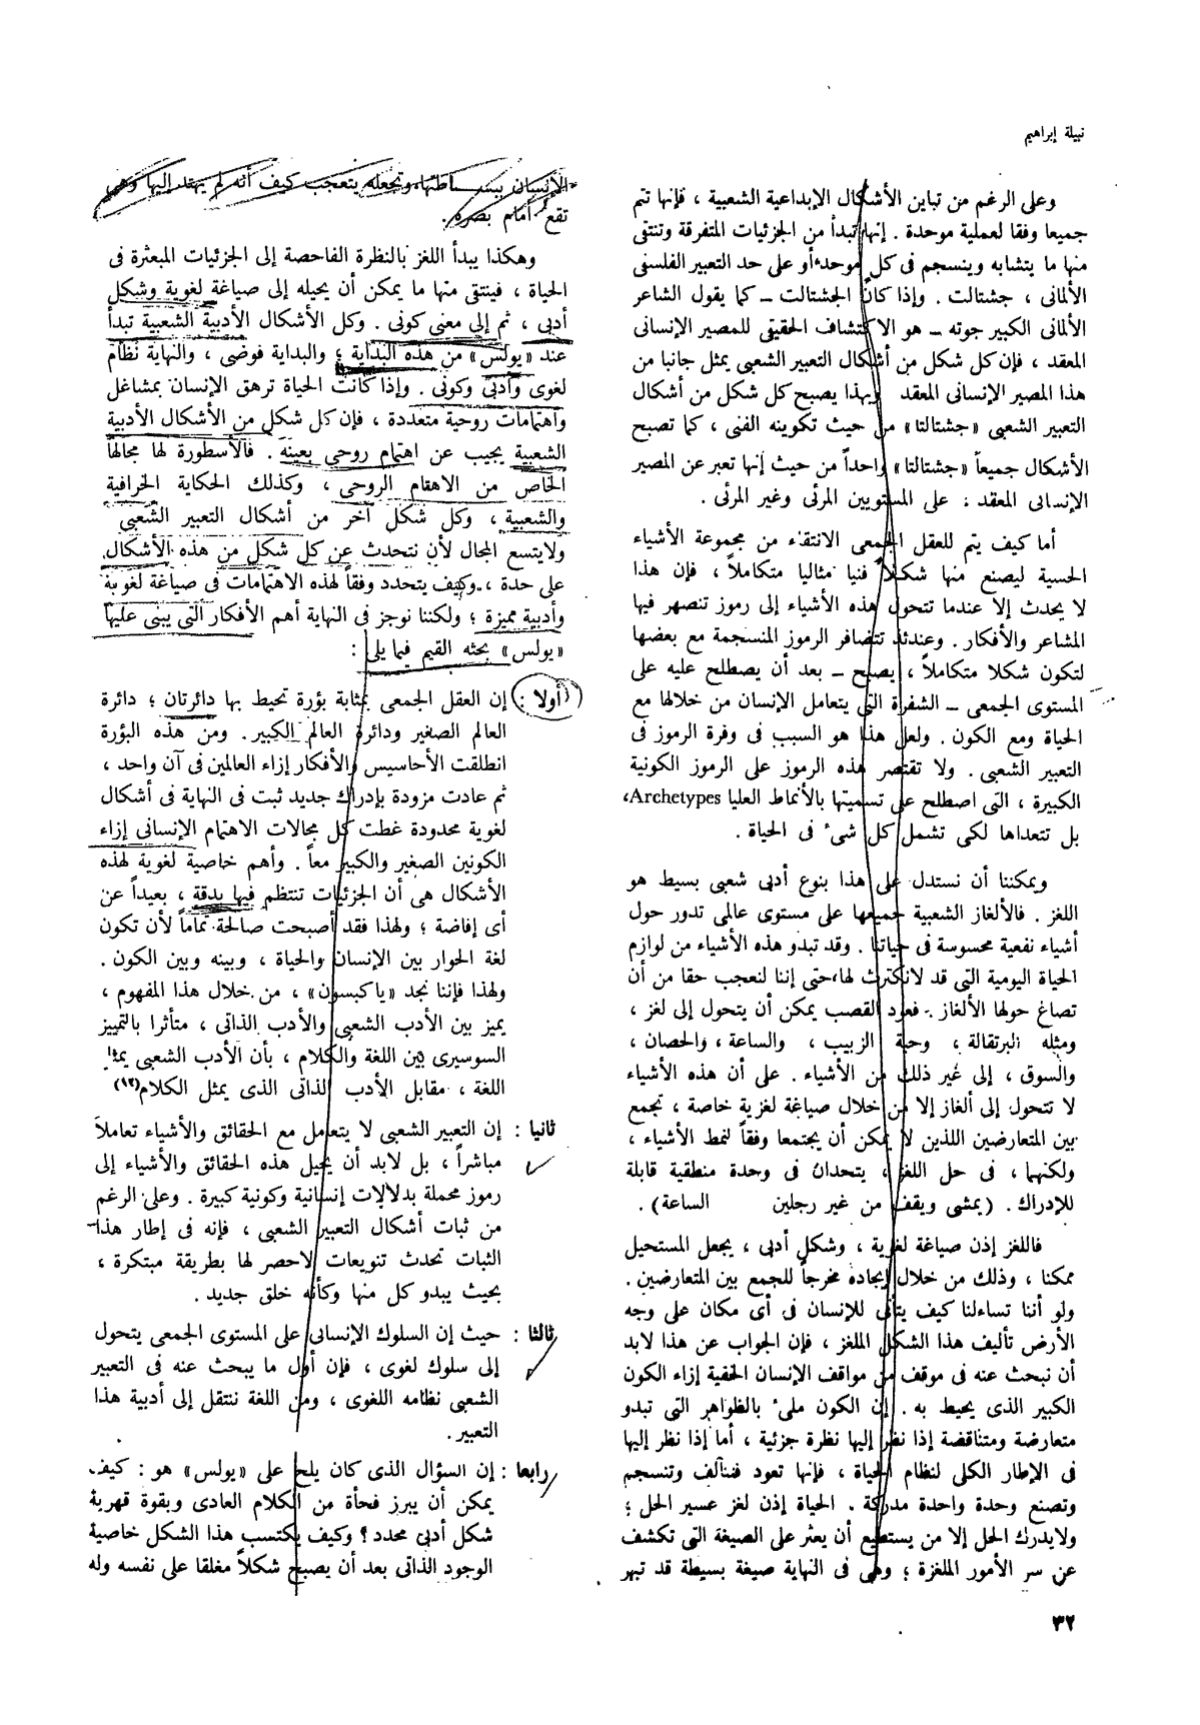 نبيلة إبراهيم
وعلى الرغم من تباين الأشكال الإبداعية الشعبية ، فإنها تتم
جميعا وفقا لعملية موحدة . إنها تبدأ من الجزئيات المتفرقة وتنتقى
منها ما يتشابه وينسجم فى كل موحد أو على حد التعبير الفلسفى
الألمانى ، جشتالت . وإذا كان الجشتالت – كما يقول الشاعر
الألمانى الكبير جوته – هو الاكتشاف الحقيقى للمصير الإنسانى
المعقد ، فإن كل شكل من أشكال التعبير الشعبى يمثل جانبا من
هذا المصير الإنسانى المعقد وبهذا يصبح كل شكل من أشكال
التعبير الشعبى «جشتالتا» من حيث تكوينه الفنى ، كما تصبح
الأشكال جميعاً «جشتالتا» واحداً من حيث إنها تعبر عن المصير
الإنسانى المعقد : على المستويين المرئى وغير المرئى .
أما كيف يتم للعقل الجمعى الانتقاء من مجموعة الأشياء
الحسية ليصنع منها شكلاً فنيا مثاليا متكاملاً ، فإن هذا
لا يحدث إلا عندما تتحول هذه الأشياء إلى رموز تنصهر فيها
المشاعر والأفكار . وعندئذ تتضافر الرموز المنسجمة مع بعضها
لتكون شكلا متكاملاً ، يصبح – بعد أن يصطلح عليه على
المستوى الجمعى – الشفرة التى يتعامل الإنسان من خلالها مع
الحياة ومع الكون . ولعل هذا هو السبب فى وفرة الرموز فى
التعبير الشعبى . ولا تقتصر هذه الرموز على الرموز الكونية
الكبيرة ، التى اصطلح على تسميتها بالأنماط العليا Archetypes،
بل تتعداها لكى تشمل كل شىء فى الحياة .
ويمكننا أن نستدل على هذا بنوع أدبى شعبى بسيط هو
اللغز . فالألغاز الشعبية جميعها على مستوى عالمى تدور حول
أشياء نفعية محسوسة فى حياتنا . وقد تبدو هذه الأشياء من لوازم
الحياة اليومية التى قد لانكترث لها، حتى إننا لنعجب حقا من أن
تصاغ حولها الألغاز . فعود القصب يمكن أن يتحول إلى لغز ،
ومثله البرتقالة ، وحبة الزبيب ، والساعة ، والحصان ،
والسوق ، إلى غير ذلك من الأشياء . على أن هذه الأشياء
لا تتحول إلى ألغاز إلا من خلال صياغة لغزية خاصة ، تجمع
بين المتعارضين اللذين لا يمكن أن يجتمعا وفقاً لنمط الأشياء ،
ولكنهما ، فى حل اللغز ، يتحدان فى وحدة منطقية قابلة
للإدراك . (يمشى ويقف من غير رجلين الساعة) .
فاللغز إذن صياغة لغوية ، وشكل أدبى ، يجعل المستحيل
ممكنا ، وذلك من خلال إيجاده مخرجاً للجمع بين المتعارضين .
ولو أننا تساءلنا كيف يتأتى للإنسان فى أى مكان على وجه
الأرض تأليف هذا الشكل الملغز ، فإن الجواب عن هذا لابد
أن نبحث عنه فى موقف من مواقف الإنسان الخفية إزاء الكون
الكبير الذى يحيط به . إن الكون ملىء بالظواهر التى تبدو
متعارضة ومتناقضة إذا نظر إليها نظرة جزئية ، أما إذا نظر إليها
فى الإطار الكلى لنظام الحياة ، فإنها تعود فتتآلف وتنسجم
وتصنع وحدة واحدة مدركة . الحياة إذن لغز عسير الحل ؛
ولايدرك الحل إلا من يستطيع أن يعثر على الصيغة التى تكشف
عن سر الأمور الملغزة ؛ وهى فى النهاية صيغة بسيطة قد تبهر
الإنسان ببساطتها، وتجعله يتعجب كيف أنه لم يهتد إليها وهى
تقع أمام بصره .
وهكذا يبدأ اللغز بالنظرة الفاحصة إلى الجزئيات المبعثرة فى
الحياة ، فينتقى منها ما يمكن أن يحيله إلى صياغة لغوية وشكل
أدبى ، ثم إلى معنى كونى . وكل الأشكال الأدبية الشعبية تبدأ
عند «يولس» من هذه البداية ؛ والبداية فوضى ، والنهاية نظام
لغوى وأدبى وكونى . وإذا كانت الحياة ترهق الإنسان بمشاغل
واهتمامات روحية متعددة ، فإن كل شكل من الأشكال الأدبية
الشعبية يجيب عن اهتمام روحى بعينه . فالأسطورة لها مجالها
الخاص من الاهتمام الروحى ، وكذلك الحكاية الخرافية
والشعبية ، وكل شكل آخر من أشكال التعبير الشعبى
ولايتسع المجال لأن نتحدث عن كل شكل من هذه الأشكال
على حدة ، وكيف يتحدد وفقاً لهذه الاهتمامات فى صياغة لغوية
وأدبية مميزة ؛ ولكننا نوجز فى النهاية أهم الأفكار التى يبنى عليها
«يولس» بحثه القيم فيما يلى :
أولا : إن العقل الجمعى بمثابة بؤرة تحيط بها دائرتان ؛ دائرة
العالم الصغير ودائرة العالم الكبير . ومن هذه البؤرة
انطلقت الأحاسيس والأفكار إزاء العالمين فى آن واحد ،
ثم عادت مزودة بإدراك جديد ثبت فى النهاية فى أشكال
لغوية محدودة غطت كل مجالات الاهتمام الإنسانى إزاء
الكونين الصغير والكبير معاً . وأهم خاصية لغوية لهذه
الأشكال هى أن الجزئيات تنتظم فيها بدقة ، بعيداً عن
أى إفاضة ؛ ولهذا فقد أصبحت صالحة تماماً لأن تكون
لغة الحوار بين الإنسان والحياة ، وبينه وبين الكون .
ولهذا فإننا نجد «ياكبسون» ، من خلال هذا المفهوم ،
يميز بين الأدب الشعبى والأدب الذاتى ، متأثرا بالتمييز
السوسيرى بين اللغة والكلام ، بأن الأدب الشعبى يمثل
اللغة ، مقابل الأدب الذاتى الذى يمثل الكلام(١٢)
ثانيا : إن التعبير الشعبى لا يتعامل مع الحقائق والأشياء تعاملاً
مباشراً ، بل لابد أن يحيل هذه الحقائق والأشياء إلى
رموز محملة بدلالات إنسانية وكونية كبيرة . وعلى الرغم
من ثبات أشكال التعبير الشعبى ، فإنه فى إطار هذا
الثبات تحدث تنويعات لاحصر لها بطريقة مبتكرة ،
بحيث يبدو كل منها وكأنه خلق جديد .
ثالثا : حيث إن السلوك الإنسانى على المستوى الجمعى يتحول
إلى سلوك لغوى ، فإن أول ما يبحث عنه فى التعبير
الشعبى نظامه اللغوى ، ومن اللغة ننتقل إلى أدبية هذا
التعبير .
رابعا : إن السؤال الذى كان يلح على «يولس» هو : كيف
يمكن أن يبرز فجأة من الكلام العادى وبقوة قهرية
شكل أدبى محدد ؟ وكيف يكتسب هذا الشكل خاصية
الوجود الذاتى بعد أن يصبح شكلاً مغلقا على نفسه وله
٣٢